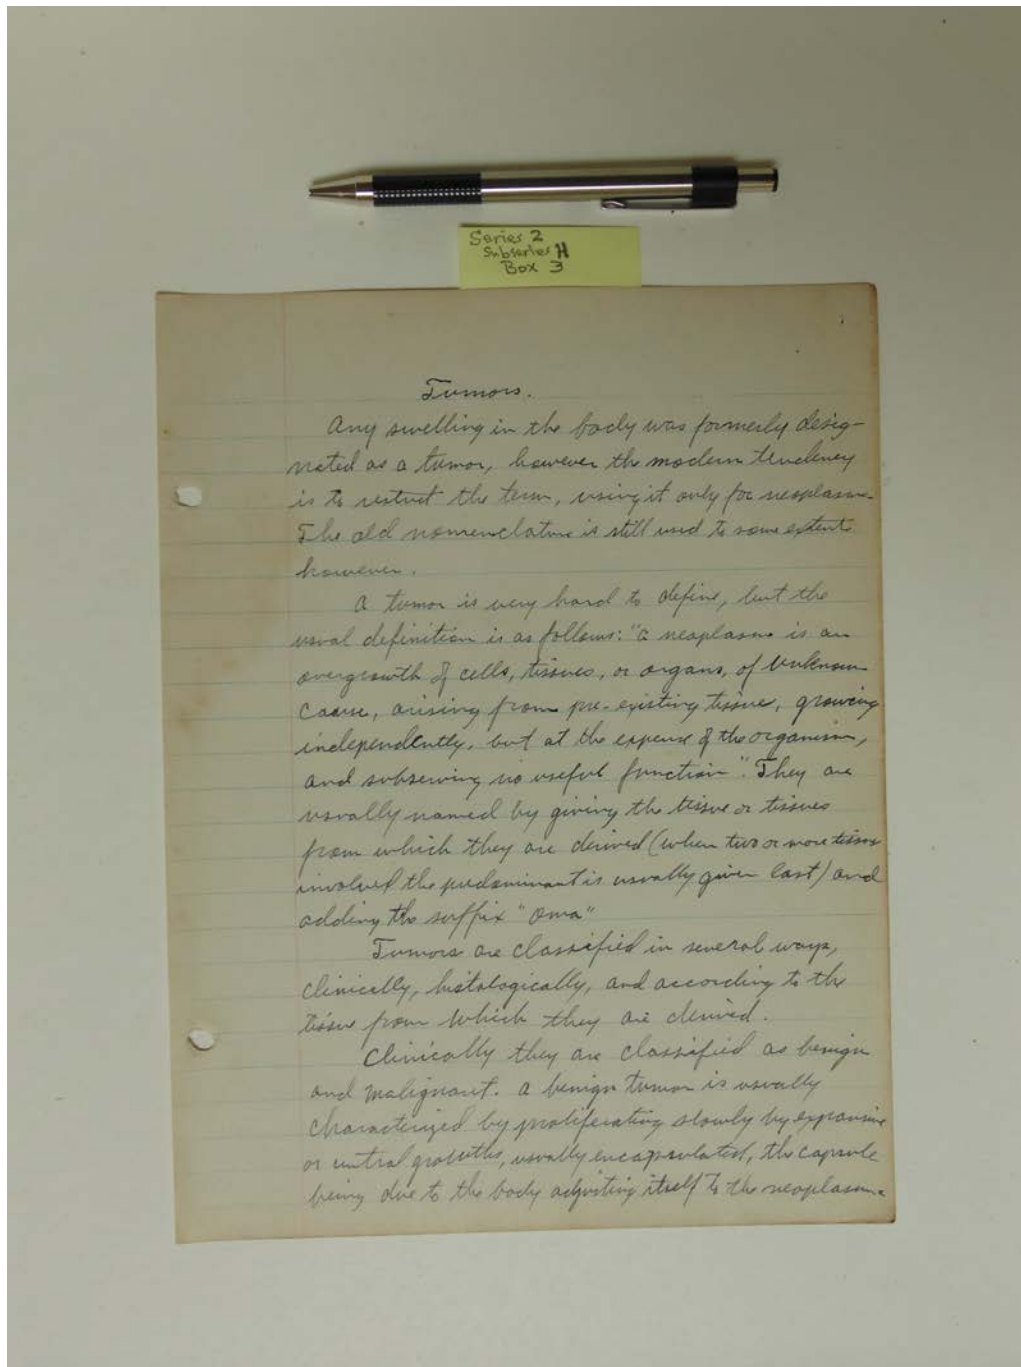 Series 2
Subseries H
Box 3
Tumors.
Any swelling in the body was formerly desig-
nated as a tumor, however the modern tendency
is to restrict the term, using it only for neoplasms.
The old nomenclature is still used to some extent
however.
A tumor is very hard to define, but the
usual definition is as follows: "a neoplasm is an
overgrowth of cells, tissues, or organs, of unknown
cause, arising from pre-existing tissue, growing
independently, but at the expense of the organism,
and subserving no useful function". They are
usually named by giving the tissue or tissues
from which they are derived (when two or more tissues
involved the predominant is usually given last) and
adding the suffix "oma"
Tumors are classified in several ways,
clinically, histologically, and according to the
tissue from which they are derived.
Clinically they are classified as benign
and malignant. A benign tumor is usually
characterized by proliferating slowly by expansive
or central growths, usually encapsulated, the capsule
being due to the body adjusting itself to the neoplasm.